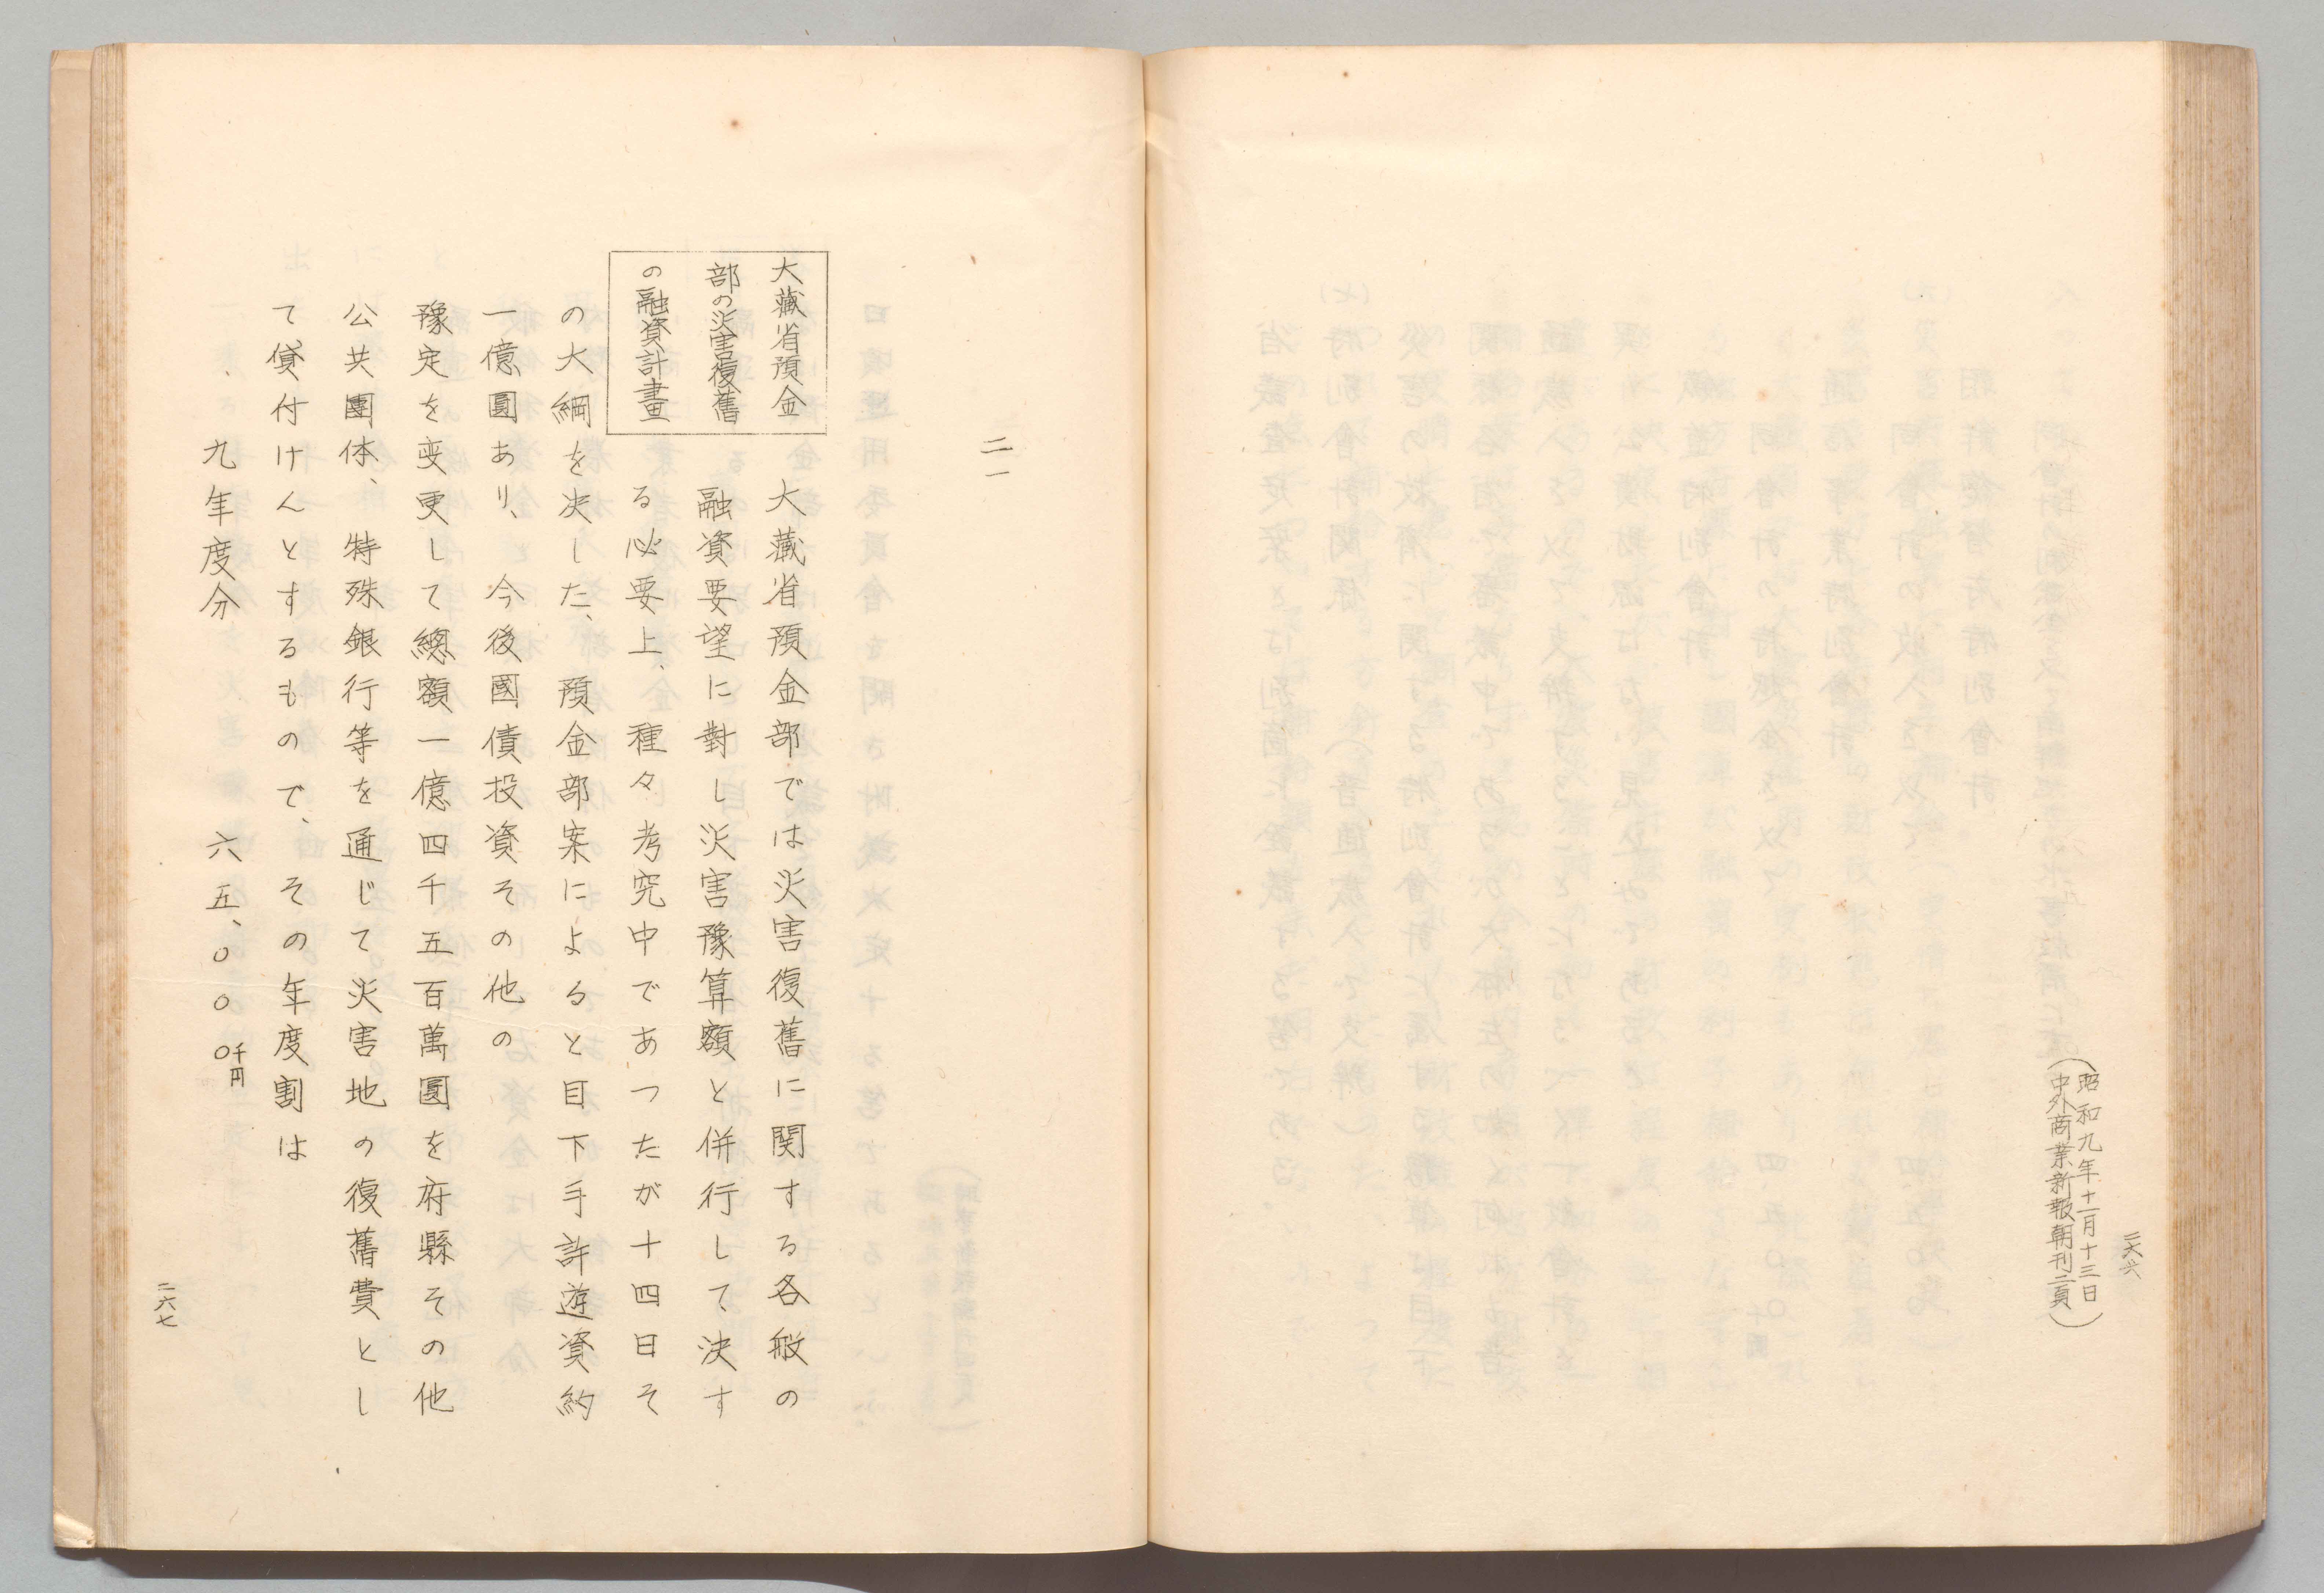 二六六
(昭和九年十一月十三日
中外商業新報朝刊二頁)
二一
大藏省預金
部の災害復舊
の融資計畫
大藏省預金部では災害復舊に関する各般の
融資要望に對し災害豫算額と併行して決す
る必要上、種々考究中であつたが十四日そ
の大綱を決した、預金部案によると目下手許遊資約
一億圓あり、今後國債投資その他の
豫定を変更して總額一億四千五百萬圓を府縣その他
公共團体、特殊銀行等を通じて災害地の復舊費とし
て貸付けんとするもので、その年度割は
九年度分 六五、〇〇〇千円
二六七